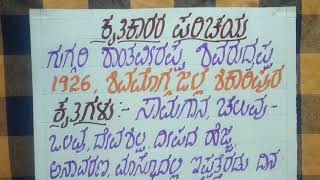 ಕೃತಿಕಾರರ ಪರಿಚಯ
ಗುಗ್ಗರಿ ಶಾಂತವೀರಪ್ಪ ಶಿವರುದ್ರಪ್ಪ
1926, ಶಿವಮೊಗ್ಗ ಜಿಲ್ಲೆ ಶಿಕಾರಿಪುರ
ಕೃತಿಗಳು:- ಸಾಮಗಾನ, ಚೆಲುವು-
ಒಲವು, ದೇವಶಿಲ್ಪ, ದೀಪದ ಹೆಜ್ಜೆ,
ಅನಾವರಣ, ಮಾಸ್ಕೋದಲ್ಲಿ ಇಪ್ಪತ್ತೆರಡು ದಿನ